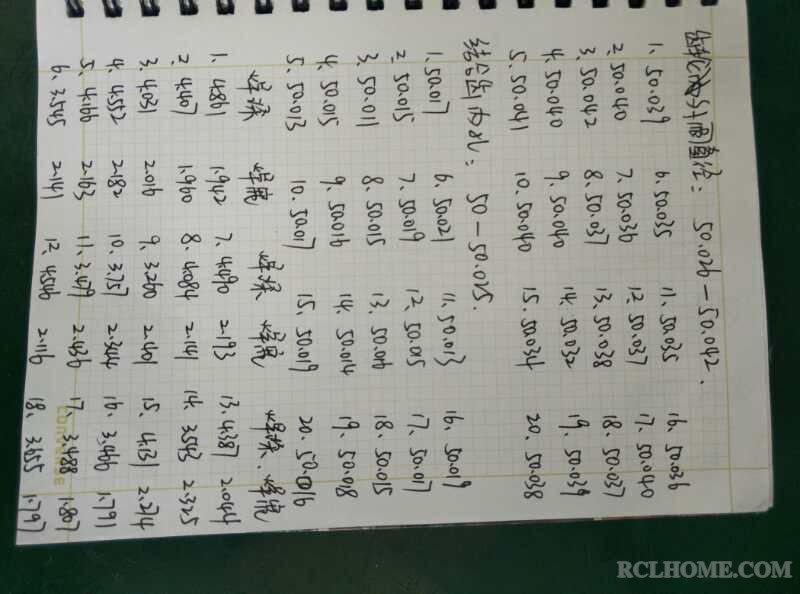 齿轮外圆直径：50.026－50.042.
1. 50.039 6. 50.035 11. 50.035 16. 50.036
2. 50.040 7. 50.036 12. 50.037 17. 50.040
3. 50.042 8. 50.037 13. 50.038 18. 50.037
4. 50.040 9. 50.040 14. 50.032 19. 50.039
5. 50.041 10. 50.040 15. 50.034 20. 50.038
结合齿内孔：50－50.025.
1. 50.017 6. 50.021 11. 50.013 16. 50.019
2. 50.015 7. 50.019 12. 50.015 17. 50.017
3. 50.011 8. 50.015 13. 50.006 18. 50.015
4. 50.015 9. 50.016 14. 50.014 19. 50.008
5. 50.013 10. 50.017 15. 50.019 20. 50.016
焊深 焊宽 焊深 焊宽 焊深. 焊宽
1. 4.861 1.942 7. 4.490 2.193 13. 4.387 2.044
2. 4.407 1.960 8. 4.084 2.141 14. 3.543 2.325
3. 4.031 2.016 9. 3.260 2.401 15. 4.131 2.274
4. 4.552 2.182 10. 3.757 2.344 16. 3.466 1.791
5. 4.166 2.163 11. 3.479 2.436 17. 3.488 1.807
6. 3.545 2.141 12. 4.546 2.116 18. 3.655 1.797
RCLHOME.COM